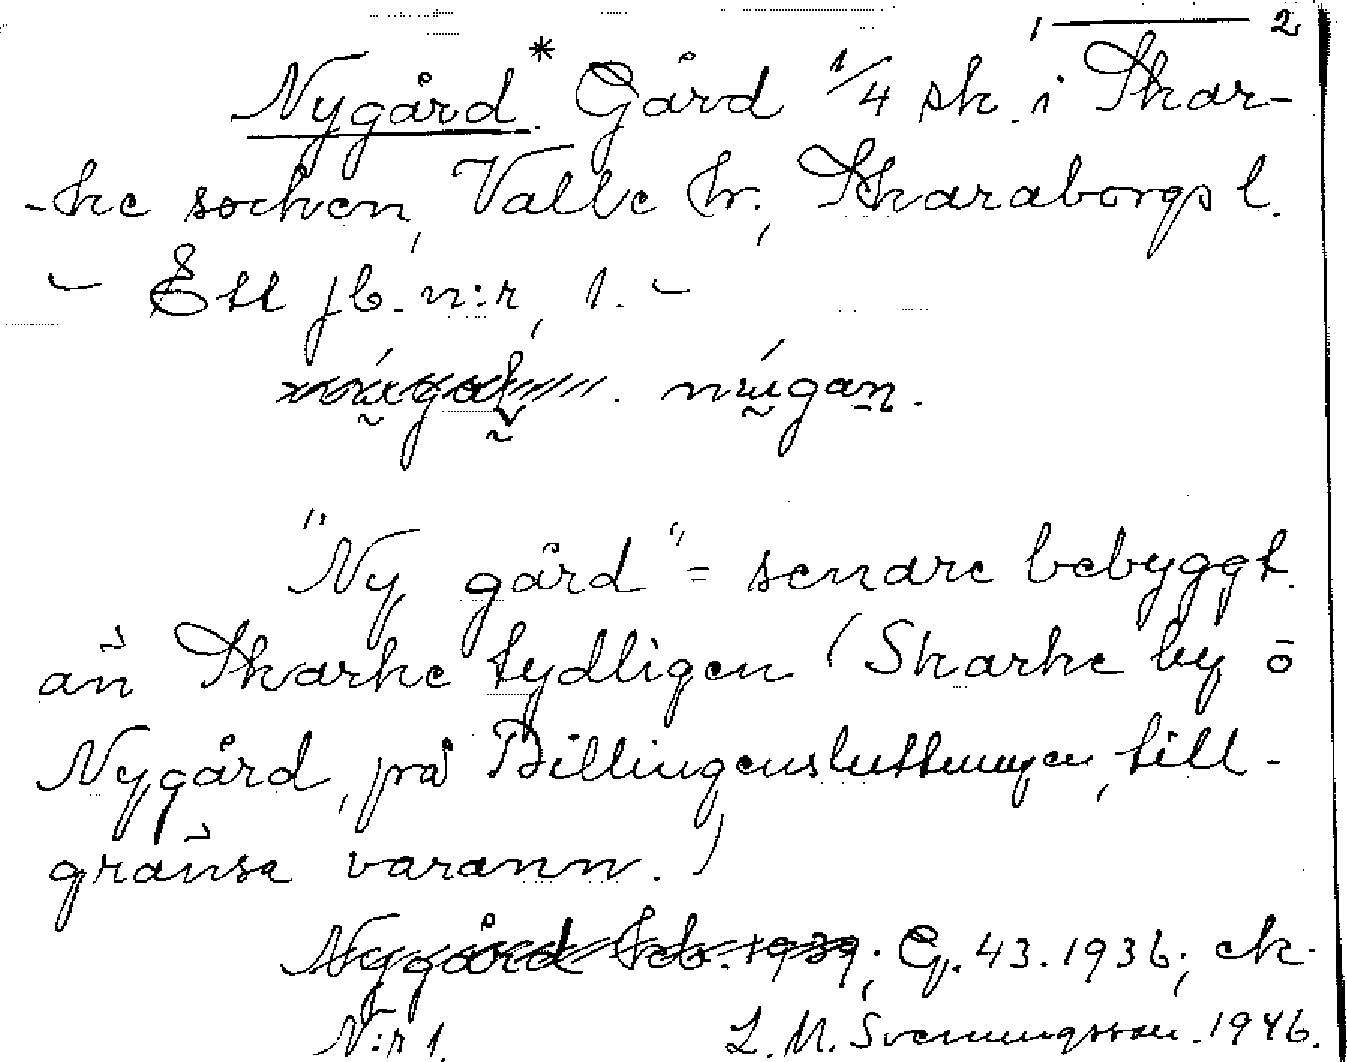 1 — 2
Nygård* Gård 1/4 sk. i Skar-
-ke socken, Valle hr., Skaraborgs l.
– Ett jb. n:r, 1. –
nẃgaṉ.
"Ny gård" = senare bebyggt
än Skarke tydligen (Skarke by o
Nygård, på Billingensluttningen, till-
gränsa varann.)
Nygård Jcb. 1939; G. 43. 1936; ek.
N:r 1. L. M. Svenungsson. 1946.